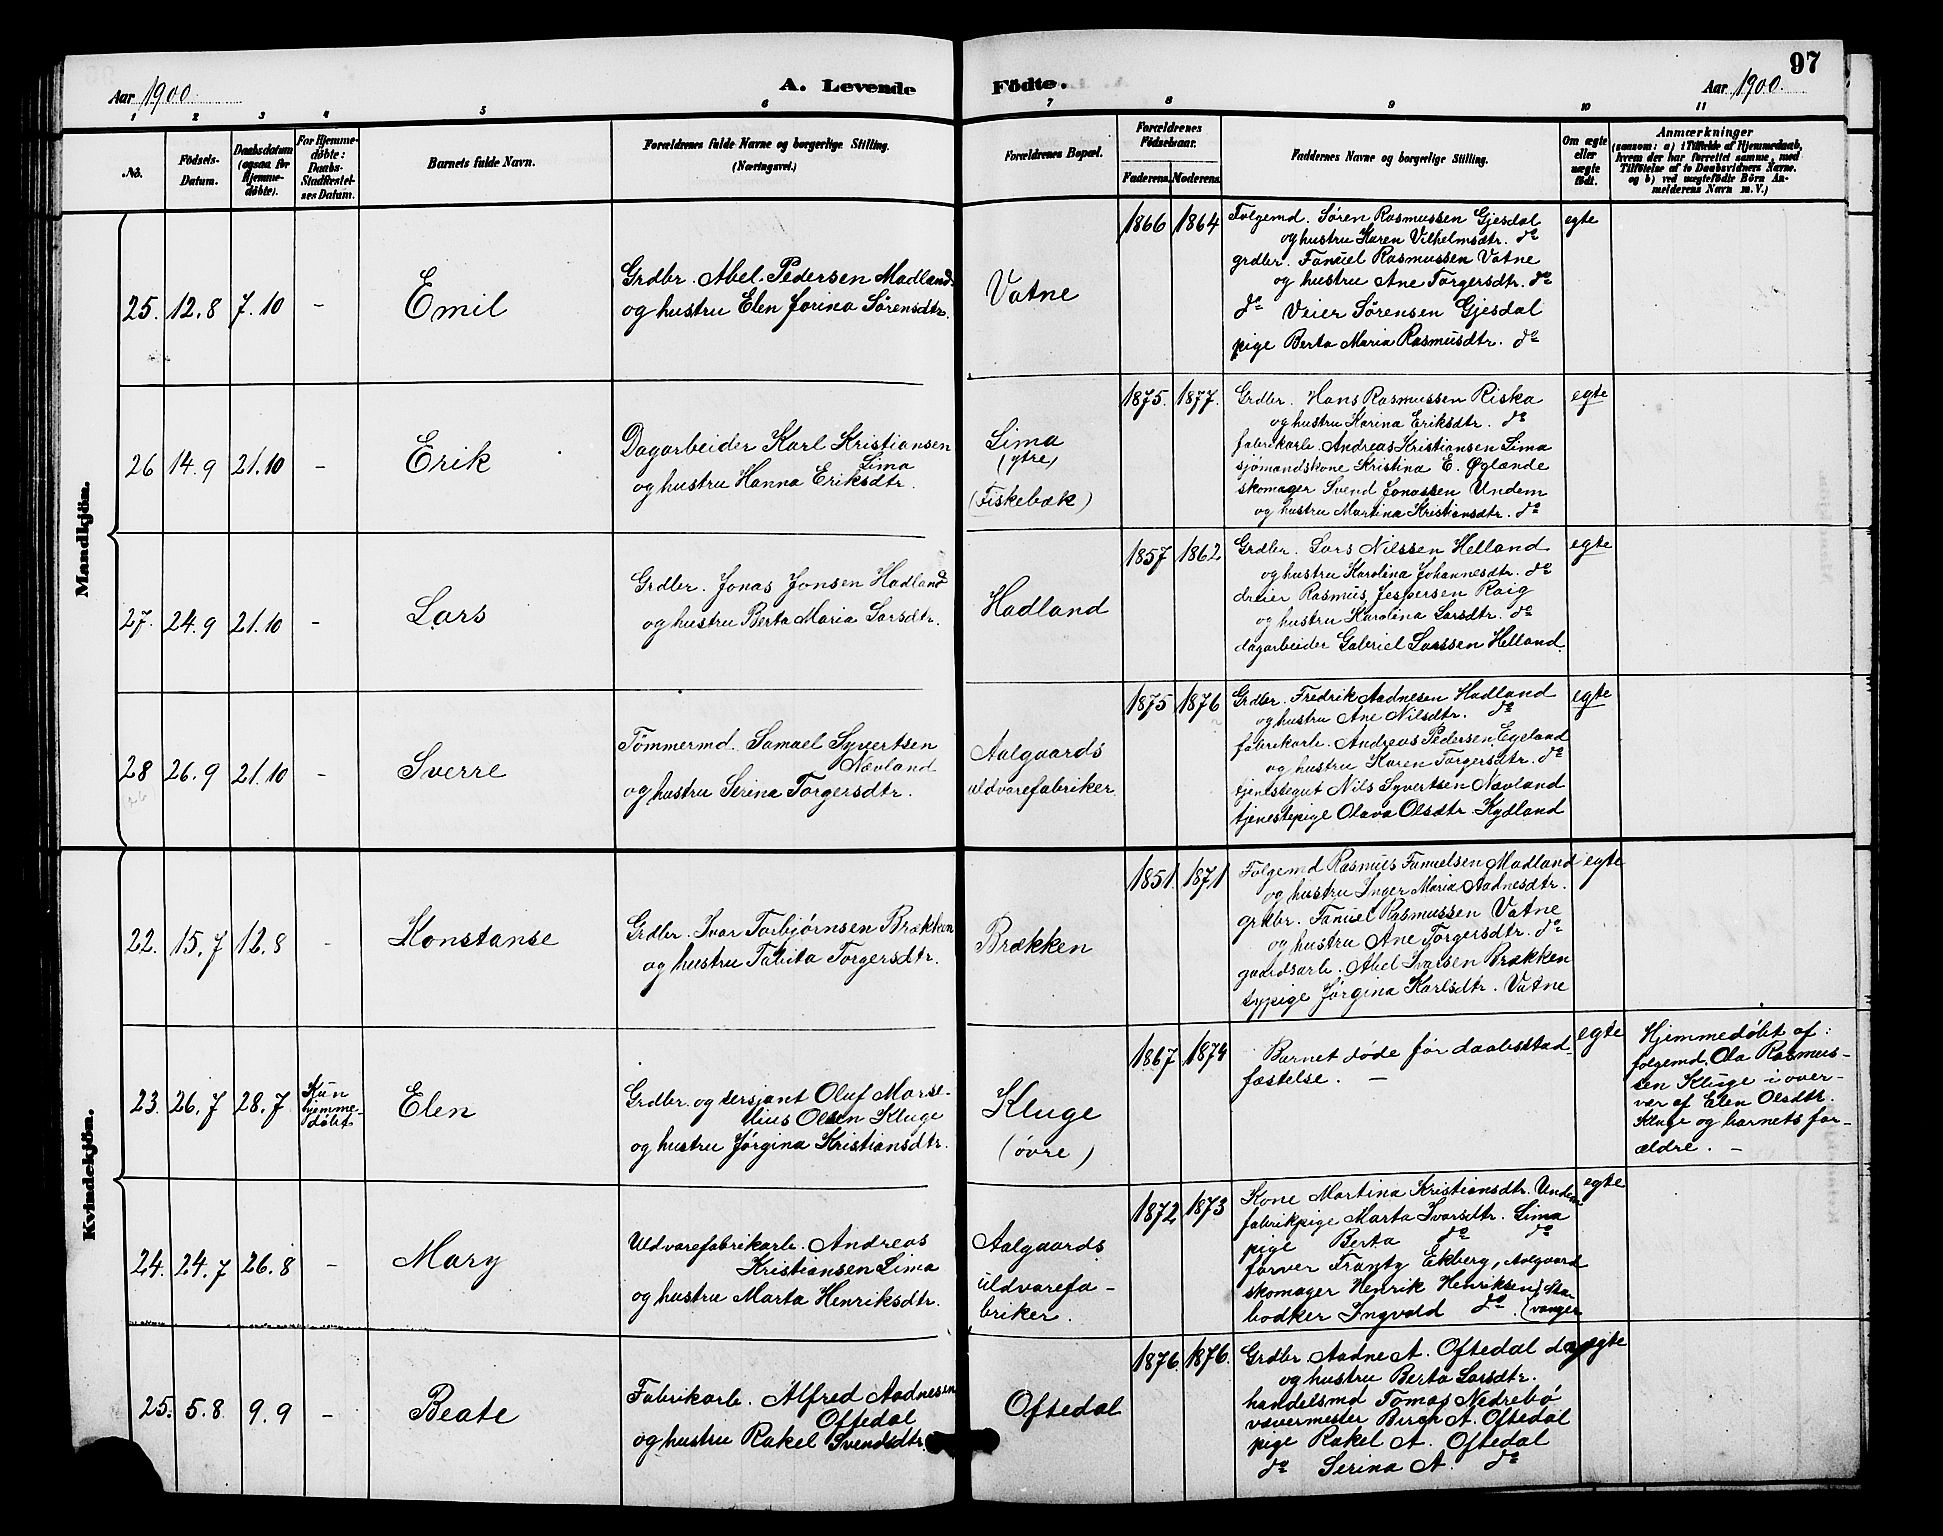 97
Aar 1900 A. Levende Födte. Aar 1900.
1 2 3 4 5 6 7 8 9 10 11
No.
Födsels-
Datum.
Daabsdatum
(ogsaa for
Hjemme-
døbte).
For Hjemme-
døbte:
Daabs-
Stadfæstel-
ses Datum.
Barnets fulde Navn.
Forældrenes fulde Navne og borgerlige Stilling.
(Næringsvei.)
Forældrenes Bopæl.
Forældrenes
Födselsaar.
Faderens. Moderens.
Faddernes Navne og borgerlige Stilling.
Om ægte
eller
uægte
født.
Anmærkninger
(saasom: a) i Tilfælde af Hjemmedaab,
hvem der har forrettet samme, med
Tilføielse af to Daabsvidners Navne,
og b) ved uægtefødte Börn An-
melderens Navn m. V.)
Mandkjön.
25. 12.8 7.10 - Emil
Grdbr. Abel Pedersen Madland
og hustru Elen Jorina Sørensdtr.
Vatne
1866 1864
Folgemd. Søren Rasmussen Gjesdal
og hustru Karen Vilhelmsdtr. do
grdbr. Fanuel Rasmussen Vatne
og hustru Ane Torgersdtr. do
do Veier Sørensen Gjesdal
pige Berta Maria Rasmusdtr. do
egte
26 14.9 21.10 - Erik
Dagarbeider Karl Kristiansen
Lima
og hustru Hanna Eriksdtr.
Lima
(ytre)
(Fiskebæk)
1875. 1877.
Grdbr. Hans Rasmussen Riska
og hustru Karina Eriksdtr. do
fabrikarb. Andreas Kristiansen Lima
sjømandskone Kristina E. Øglænde
skomager Svend Jonassen Undem
og hustru Martina Kristiansdtr. do
egte
27. 24.9 21.10 - Lars
Grdbr. Jonas Jonsen Hadland
og hustru Berta Maria Larsdtr.
Hadland
1857 1862
Grdbr. Lars Nilssen Helland
og hustru Karolina Johannesdtr. do
dreier Rasmus Jespersen Roig
og hustru Karolina Larsdtr. do
dagarbeider Gabriel Larssen Helland
egte
28 26.9 21.10 - Sverre
Tømmermd. Samuel Syvertsen
Nævland
og hustru Serina Torgersdtr.
Aalgaards
uldvarefabriker
1875 1876
Grdbr. Fredrik Aadnesen Hadland
og hustru Ane Nilsdtr. do
fabrikarb. Andreas Pedersen Egeland
og hustru Karen Torgersdtr. do
tjenstegut Nils Syvertsen Nævland
tjenestepige Olava Olsdtr. Kydland
egte
Kvindekjön.
22. 15.7 12.8 - Konstanse
Grdbr. Ivar Torbjørnsen Brækken
og hustru Tabita Torgersdtr.
Brækken
1851 1871
Folgemd Rasmus Fanuelsen Madland
og hustru Inger Maria Aadnesdtr.
grdbr. Fanuel Rasmussen Vatne
og hustru Ane Torgersdtr. do
gaardsarb. Abel Ivarsen Brækken
sypige Jørgina Karlsdtr. Vatne
egte
23. 26.7 28.7
Kun
hjemme-
døbt
Elen
Grdbr. og sersjant Oluf Marse-
lius Olsen Kluge
og hustru Jørgina Kristiansdtr.
Kluge
(øvre)
1867 1874
Barnet døde før daabsstad-
fæstelse. -
egte
Hjemmedøbt af:
folgemd. Ola Rasmus-
sen Kluge i over-
vær af Elen Olsdtr.
Kluge og barnets for-
ældre. -
24. 24.7 26.8 - Mary
Uldvarefabrikarb. Andreas
Kristiansen Lima
og hustru Marta Henriksdtr.
Aalgaards
uldvarefa-
briker.
1872 1873
Kone Martina Kristiansdtr. Undem
fabrikpige Marta Ivarsdtr. Lima
pige Berta do do
farver Frantz Ekberg, Aalgaard
skomager Henrik Henriksen } Sta-
bødker Ingvald do. vanger
egte
25. 5.8 9.9 - Beate
Fabrikarb. Alfred Aadnesen
Oftedal
og hustru Rakel Svendsdtr.
Oftedal
1876. 1876.
Grdbr. Aadne A. Oftedal
og hustru Berta Larsdtr.
handelsmd Tomas Nedrebø
vævermester Birch A. Oftedal
pige Rakel A. Oftedal
do Serina A. do
egte